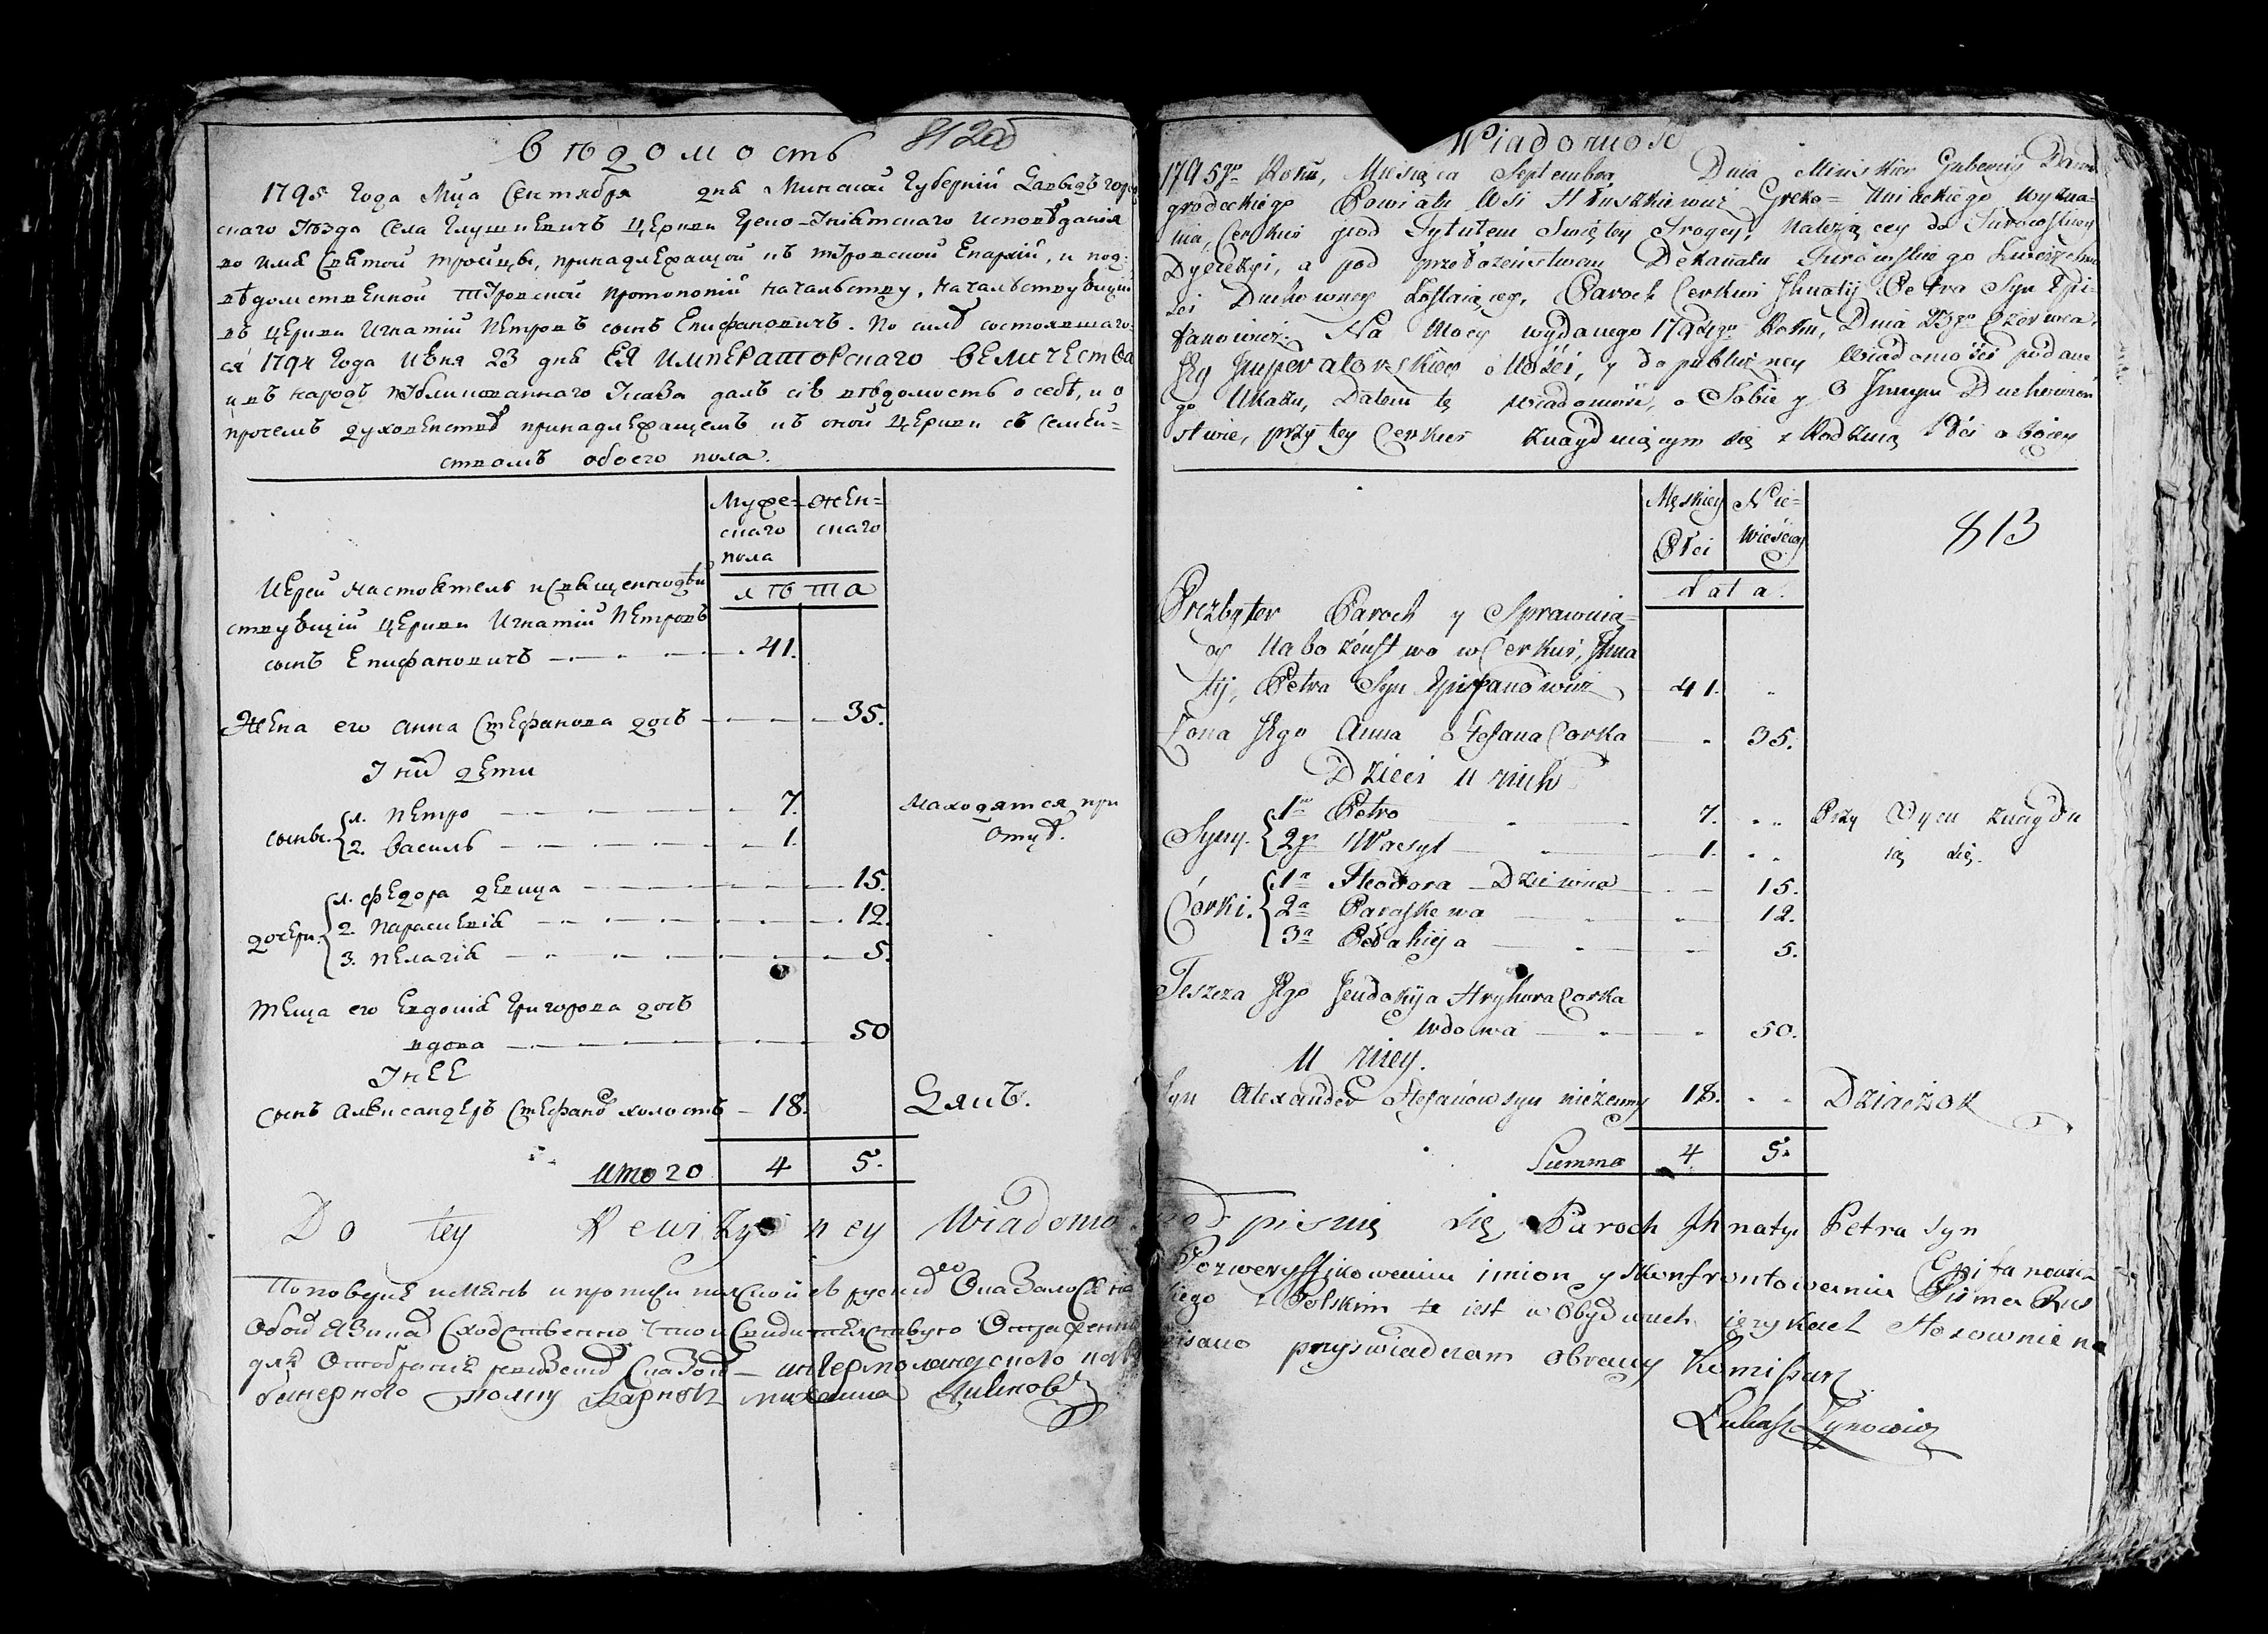 812об
Вѣдомость
1795 года Мца Сентября дня Минской Губерніи Давидъ горо
скаго Уѣзда Села Глушкевичъ Церкви Греко-Уніатскаго исповѣданія
во имя Святой Тройцы, принадлежащой къ Туровской Епархіи, и под-
вѣдомственной Туровской протопопіи начальству, Началствующій
въ церкви Игнатій Петровъ сынъ Епифановичъ. По силѣ состоявшаго-
ся 1794 Года Июня 23 дня ЕЯ ИМПЕРАТОРСкаго ВЕЛИЧЕСТВА
и въ народъ публикованнаго Указа далъ сію вѣдомость о себѣ, и о
прочемъ духовенствѣ принадлежащемъ къ оной Церкви съ семей-
ствомъ обоего пола.
Муже- Жен-
скаго скаго
пола
лѣта
Иерей Настоятель и Священнодѣй
ствующій церкви Игнатій Петровъ
сынъ Епифановичъ 41.
Жена его Анна Стефанова дочь 35.
У ний дети
сыны. 1. Петро 7. Находятся при
2. Василь 1. Отцѣ.
дочери. 1. Федора девица 15.
2. Параскевія 12.
3. Пелагія 5.
Теща его Евдокія Григорова дочь
вдова 50
У нее
сынъ Александеръ Стефанѣ холостъ 18. Дякъ.
Итого 4 5.
Do tey Rewizyiney Wiadomo
По поверке имянъ и прописи
Обой языка Сходственно что и Свидительствую
для Отобрания ревизских Сказок
Wiadomość
1795go Roku, Miesiąca Septembra Dnia Minskiey Gubernij Dawid
grodeckiego Powiatu Wsi Hłuszkiewicz Greko-Uniackiego wyzna-
nia, Cerkwi pod Tytułem Swiętey Troycy, należącey do Turowskiey
Dyecezyi, a pod przełożeństwem Dekanatu Turowskiego Zwierzchno
ści Duchowney Zostaiącey, Paroch Cerkwi Jhnatij Petra Syn Epi-
fanowicz. Na Mocy wydanego 1794go Roku, Dnia 23go Czerwca.
Jey Jmperatorskiey Mości, y do publiczney Wiadomości podane
go Ukazu, Dałem tę wiadomość, o Sobie y o Jnnym Duchowień
stwie, przy tey Cerkwi znayduiącym się z Rodziną Płci oboiey
Męskiey Nie-
Płci wieściey
813
Lata.
Prezbyter Paroch y Sprawuią-
cy Nabożeństwo w Cerkwi, Jhna
tij, Petra Syn Epifanowicz 41.
Żona Jego Anna Stefana Corka 35.
Dzieci u nich
Syny. 1szy Petro 7. Przy Oycu znaydu
2gi Wasyl 1. ią się.
Córki. 1a Fteodora Dziewica 15.
2a Paraskewa 12.
3a Pełahija 5.
Teszcza Jego Jeudokija Hryhora Corka
wdowa 50.
u niey.
Syn Alexander Stefanów syn nieżenny 18. Dziaczok
Summa 4 5.
podpisuię się Paroch Jhnaty Petra syn
Epifanowicz
Pozweryffikowaniu imion y skonfrontowaniu Pisma Rus
kiego z Polskim że iest w Obydwuch ięzykach Stosownie na
pisano przyswiadczam obrany Komisarz
Łukasz Zynowicz